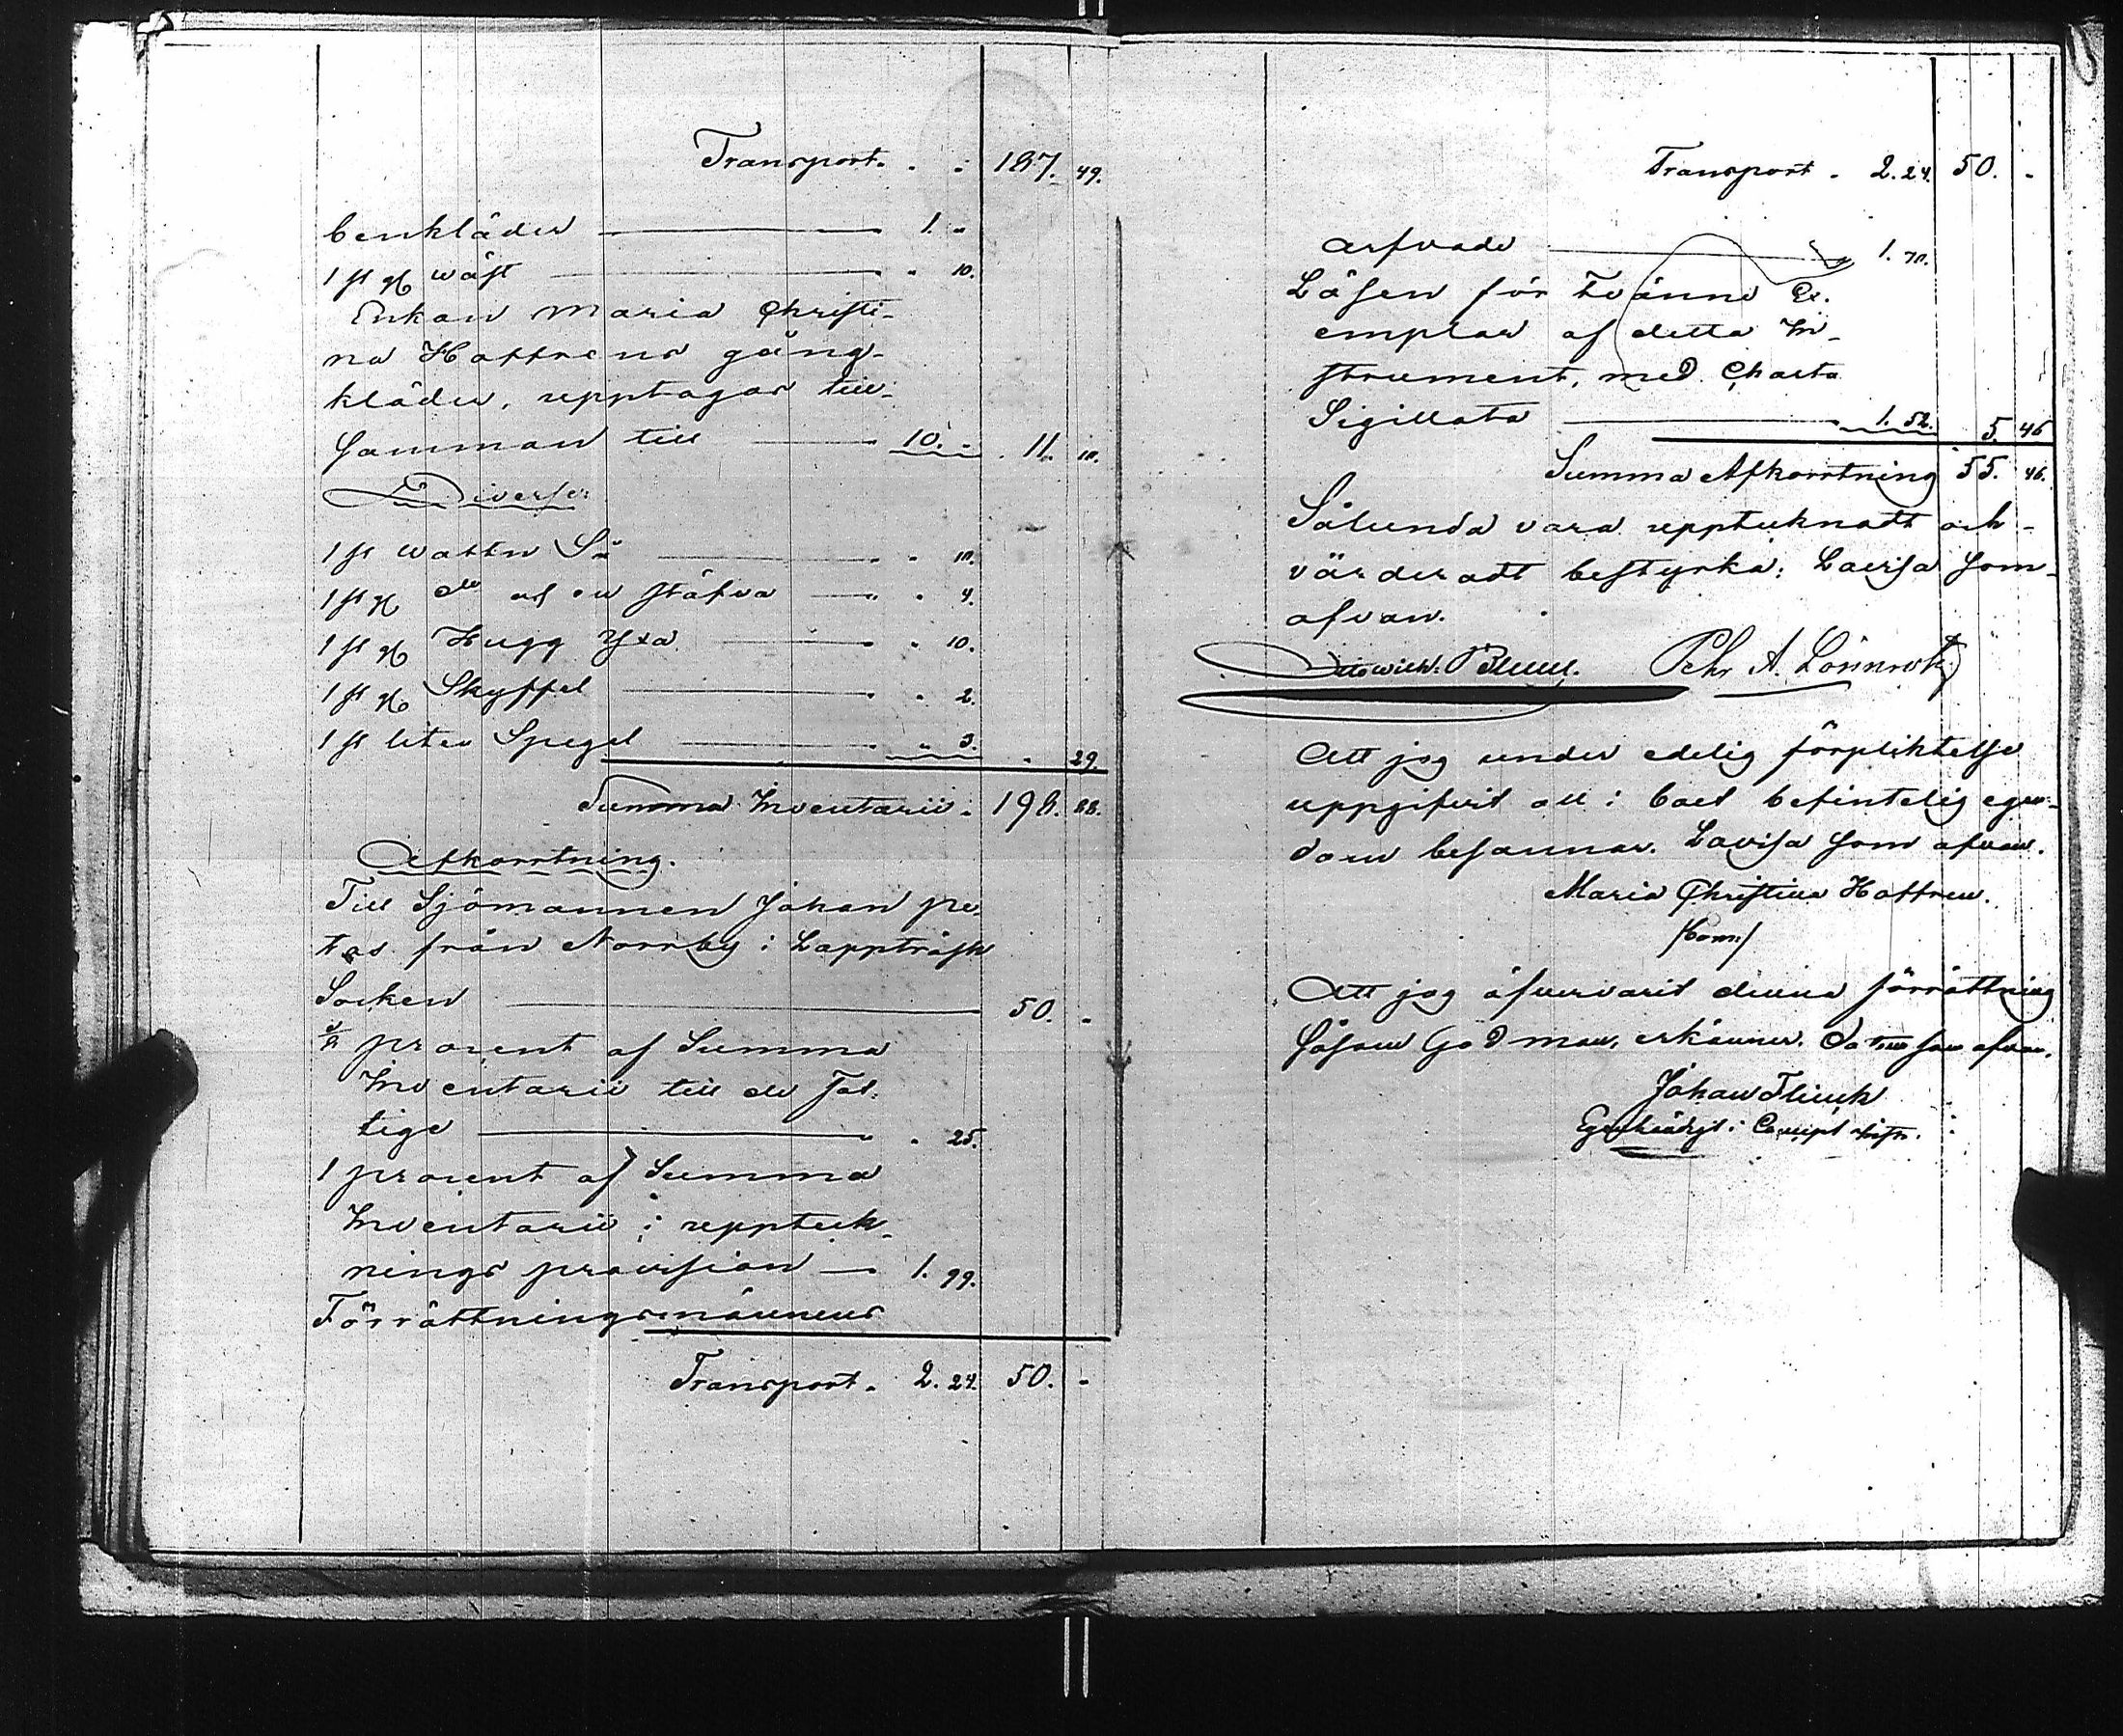 Transport. . . 187. 49.
benkläder 1. "
1 st gl wäst " 10.
Enkan Maria Christi-
na Hoffrens gång-
kläder, upptagas till-
samman till 10. - 11. 10.
Diverse:
1 st watten Så " 10.
1 st gl do af en stäfva " 4.
1 st gl Hugg Yxa " 10.
1 st gl Skyffel " 2.
1 st liten Spegel " 3. " 29.
Summa Inventarii. 198. 88.
Afkorrtning.
Till Sjömannen Johan Pe-
ters från Norrby i Lappträsk
Socken 50. -
1/8 procent af Summa
Inventarii till de Fat-
tige " 25.
1 procent af Summa
Inventarii i uppteck-
nings provision 1. 99.
Förrättningsmännens
Transport. 2. 24. 50. -
Transport. 2. 24. 50. -
arfvode 1. 70.
Lösen för tvänne Ex-
emplar af detta In-
strument, med Charta
Sigillata 1. 52. 5. 46
Summa Afkorrtning 55. 46.
Sålunda vara upptecknadt och
värderadt bestyrka: Lovisa som
ofvan.
Otto Wilh. Petr A. Lönnrot
Att jag under edelig förpliktelse
uppgifvit all i boet befintelig egen-
dom besannar. Lovisa som ofvan.
Maria Christina Hoffren.
/bom:/
Att jag öfvervarit denna förrättning
såsom God man, erkänner. Datum som ofvan.
Johan Flinck
Egenhändigt i Concept